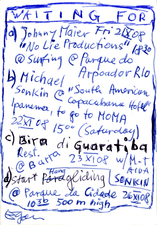 WAITING FOR
a) Johnny Maier Fri 21X08
"No Lie Productions" 1830
@ Surfing @ Parque do
Arpoador RIO
b) Michael
Sonkin @ "South American
Copacabana Hotel
Ipanema, to go to MOMA
22XI08 1500 (Saturday)
c) Bira di Guaratiba
Rest.
@ Barra 23XI08 w/ M-t
AIDA
d) start Hang Paragliding SONKIN
@ Parque la Cidade 26XI08
1030 500 m high